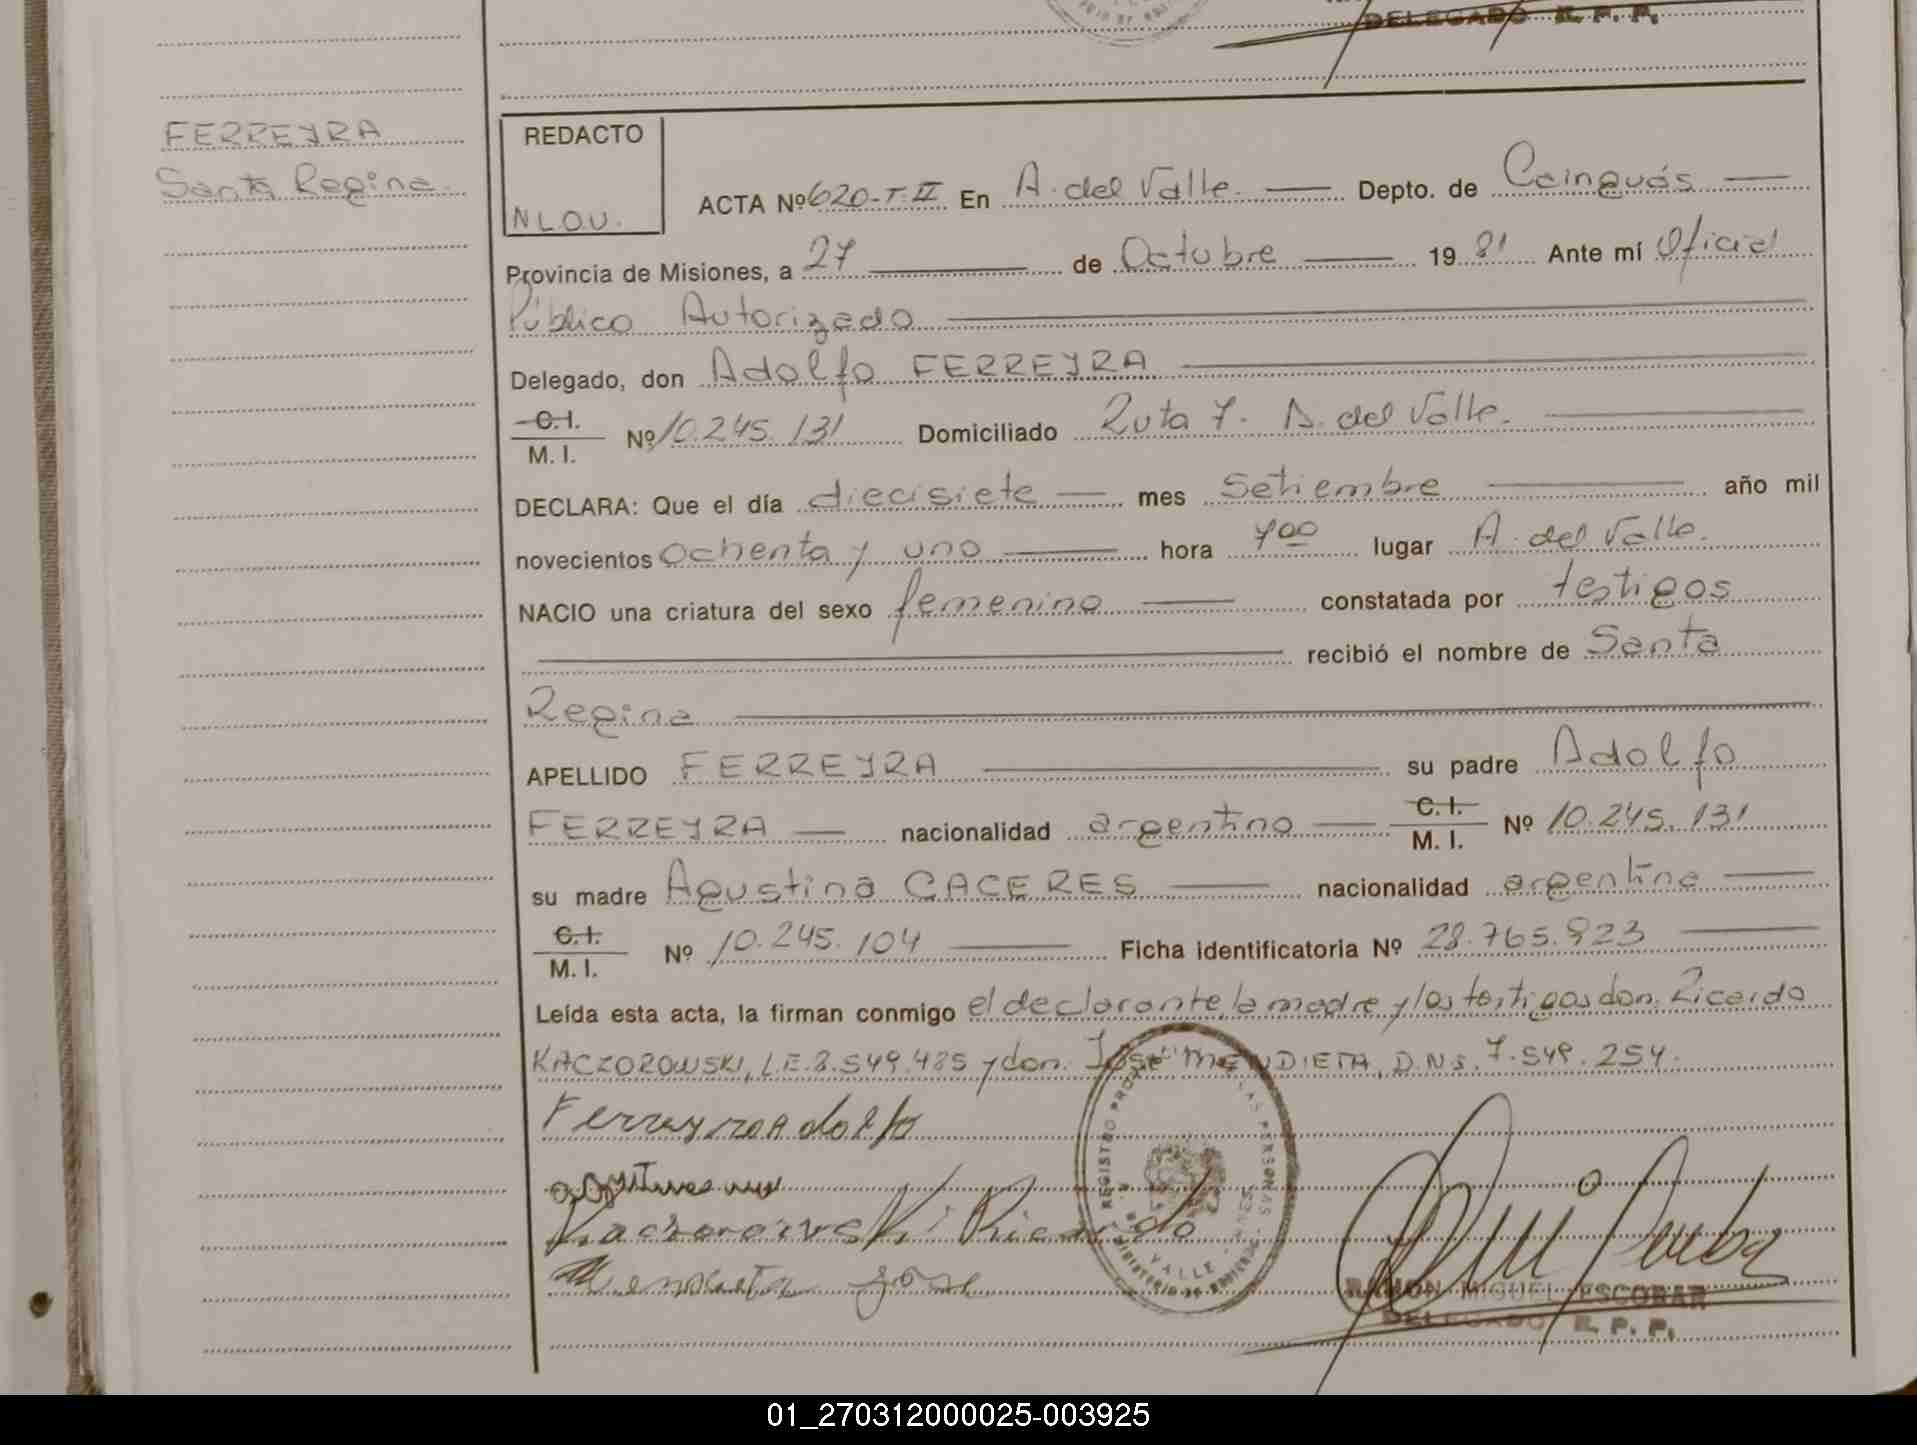 DELEGADO R. P. P.
FERREYRA
Santa Regina.
REDACTO
N L.O.U.
ACTA Nº 620-T-II En A. del Valle. Depto. de Cainguás
Provincia de Misiones, a 27 de Octubre 19 81 Ante mí Oficial
Público Autorizado
Delegado, don Adolfo FERREYRA
C.I.
M. I. Nº 10.245.131 Domiciliado Ruta 7. A. del Valle.
DECLARA: Que el día diecisiete mes Setiembre año mil
novecientos ochenta y uno hora 7 00 lugar A. del Valle.
NACIO una criatura del sexo femenino constatada por testigos
recibió el nombre de Santa
Regina
APELLIDO FERREYRA su padre Adolfo
FERREYRA nacionalidad argentino C. I. M. I. Nº 10.245.131
su madre Agustina CACERES nacionalidad argentina
C.I.
M. I. Nº 10.245.104 Ficha identificatoria Nº 28.765.923
Leída esta acta, la firman conmigo el declarante, la madre y los testigos don. Ricardo
KACZOROWSKI, L.E. 8.549.485 y don. José MENDIETA, D.N.I. 7.549.254.
Ferreyra Adolfo
Kaczorowski Ricardo
Mendieta José
REGISTRO PROV. DE LAS PERSONAS
VALLE
MINISTERIO DE GOBIERNO
RAMON MIGUEL ESCOBAR
DELEGADO R. P. P.
01_270312000025-003925